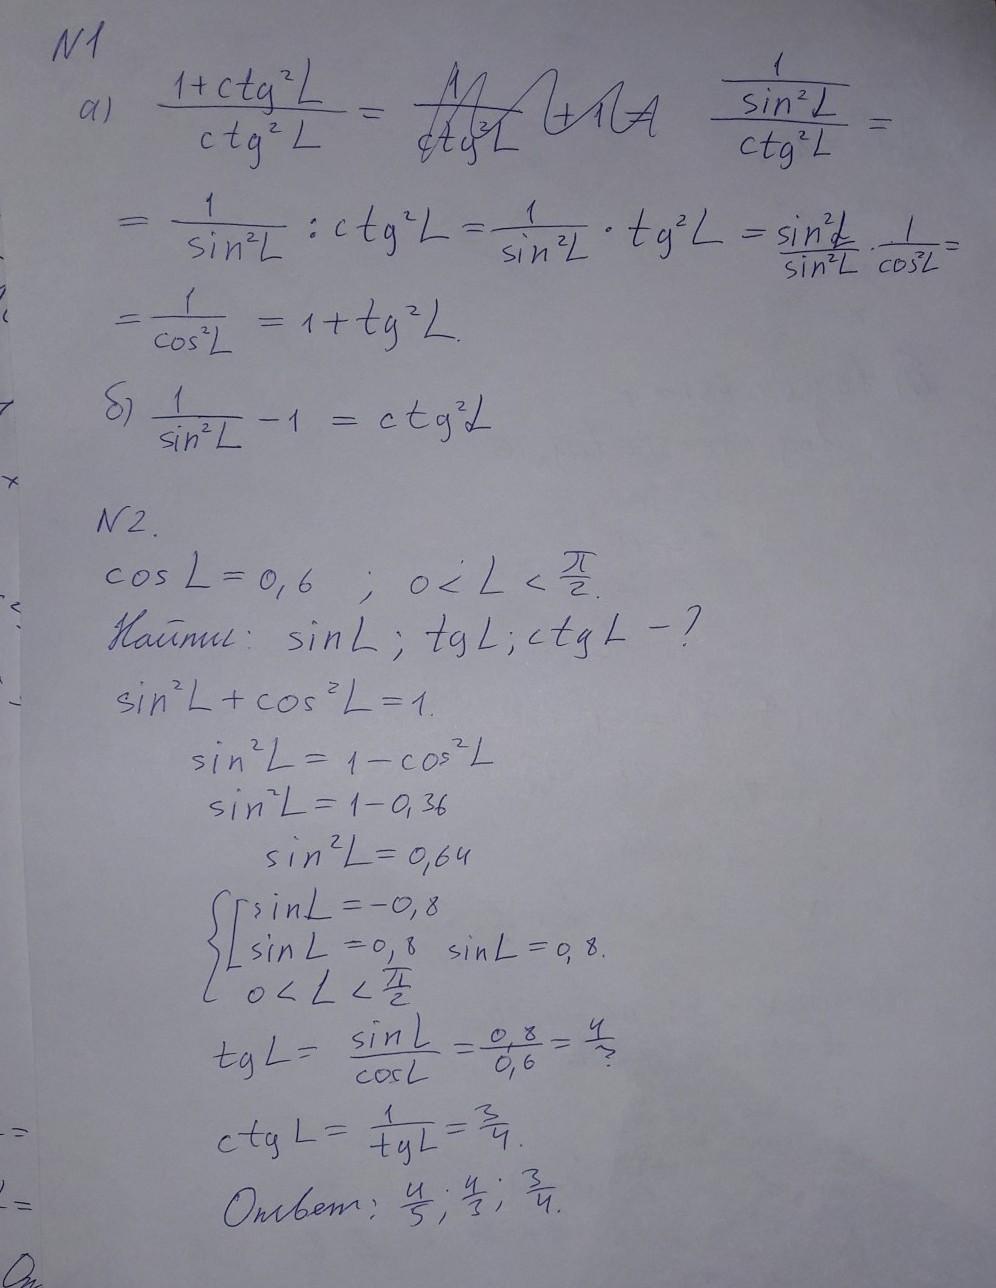 N1
а) (1+ctg²L)/(ctg²L) = (1/sin²L)/(ctg²L) =
= 1/sin²L : ctg²L = 1/sin²L · tg²L = sin²L/sin²L · 1/cos²L =
= 1/cos²L = 1+tg²L.
б) 1/sin²L - 1 = ctg²L
N2.
cos L = 0,6 ; 0 < L < π/2.
Найти: sin L; tg L; ctg L - ?
sin²L + cos²L = 1.
sin²L = 1 - cos²L
sin²L = 1 - 0,36
sin²L = 0,64
{[sin L = -0,8
[sin L = 0,8 sin L = 0,8.
0 < L < π/2
tg L = sin L/cos L = 0,8/0,6 = 4/3
ctg L = 1/tg L = 3/4.
Ответ: 4/5; 4/3; 3/4.